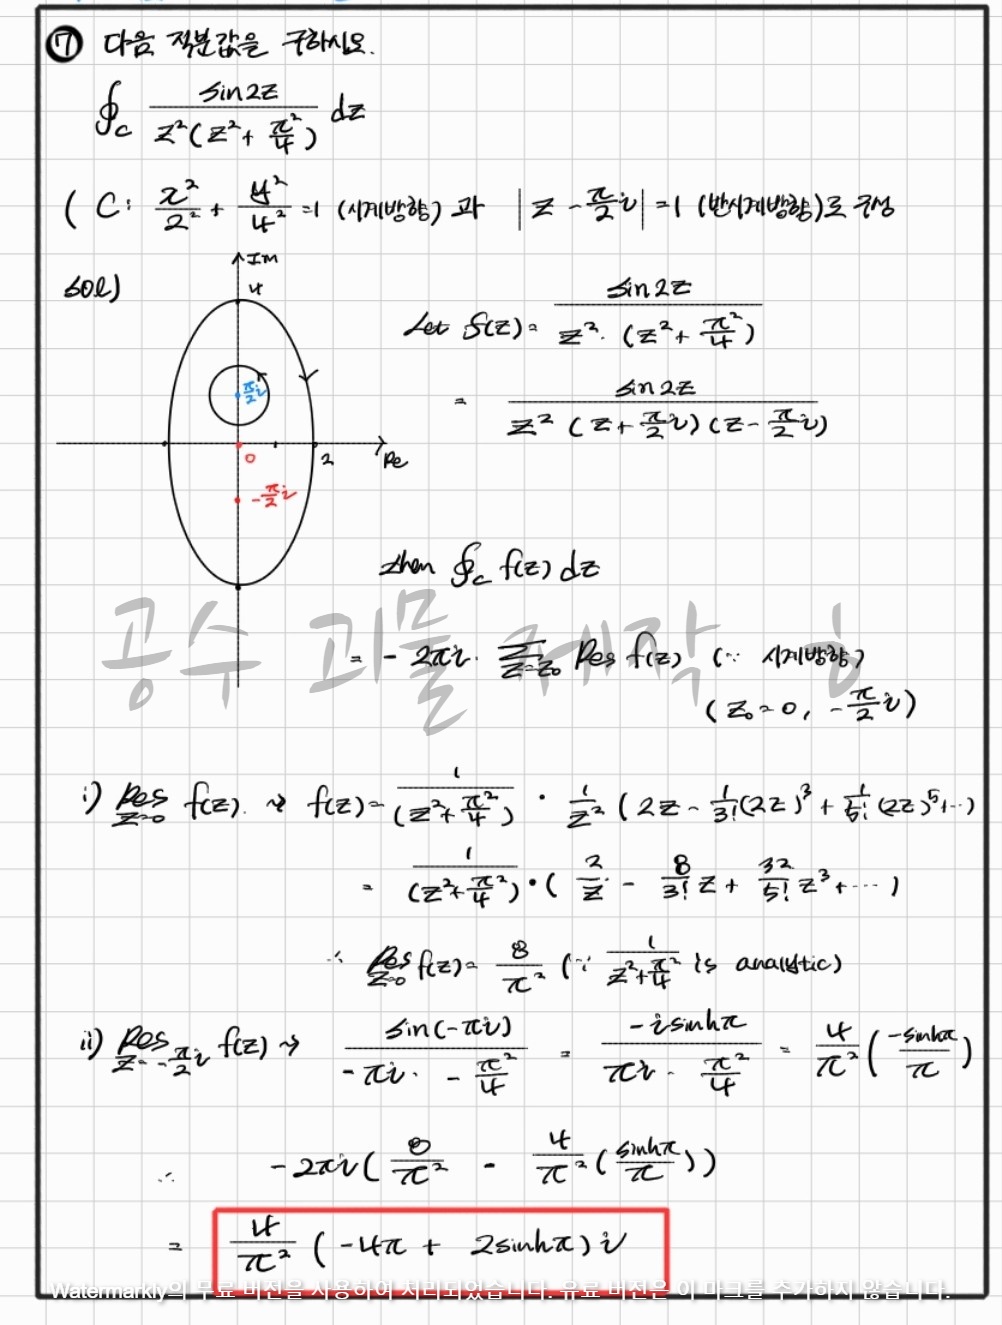 ⑦ 다음 적분값을 구하시오.
∮_C sin2z / (z²(z² + π²/4)) dz
( C: x²/2² + y²/4² = 1 (시계방향) 과 |z - π/2 i| = 1 (반시계방향)로 구성
sol)
Im
4
π/2 i
0
2
Re
-π/2 i
Let f(z) = sin2z / (z² · (z² + π²/4))
= sin2z / (z² (z + π/2 i)(z - π/2 i))
then ∮_C f(z) dz
= - 2πi · Σ_{z=z₀} Res f(z) (∵ 시계방향)
(z₀ = 0, -π/2 i)
공수 괴물 제작
i) Res_{z=0} f(z). → f(z) = 1/(z² + π²/4) · 1/z² (2z - 1/3! (2z)³ + 1/5! (2z)⁵ + ···)
= 1/(z² + π²/4) · (2/z - 8/3! z + 32/5! z³ + ···)
∴ Res_{z=0} f(z) = 8/π² (∵ 1/(z² + π²/4) is analytic)
ii) Res_{z=-π/2 i} f(z) → sin(-πi) / (-πi · -π²/4) = -i sinhπ / (πi · π²/4) = 4/π² (-sinhπ/π)
∴ -2πi (8/π² - 4/π² (sinhπ/π))
= 4/π² (-4π + 2sinhπ) i
Watermarkly의 무료 버전을 사용하여 처리되었습니다. 유료 버전은 이 마크를 추가하지 않습니다.